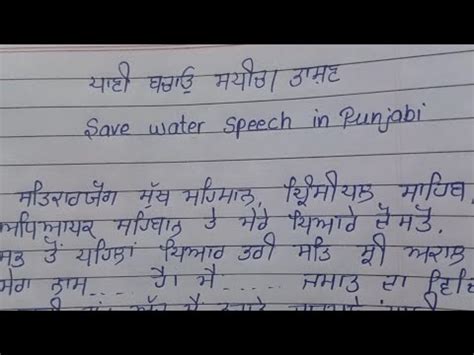 ਪਾਣੀ ਬਚਾਓ ਸਪੀਚ। ਭਾਸ਼ਣ
Save water speech in Punjabi
ਸਤਿਕਾਰਯੋਗ ਮੁੱਖ ਮਹਿਮਾਨ, ਪ੍ਰਿੰਸੀਪਲ ਸਾਹਿਬ,
ਅਧਿਆਪਕ ਸਹਿਬਾਨ ਤੇ ਮੇਰੇ ਪਿਆਰੇ ਦੋਸਤੋ,
ਸਭ ਤੋਂ ਪਹਿਲਾਂ ਪਿਆਰ ਭਰੀ ਸਤਿ ਸ੍ਰੀ ਅਕਾਲ
ਮੇਰਾ ਨਾਮ .... ਹੈ। ਮੈਂ ..... ਜਮਾਤ ਦਾ ਵਿਦਿ